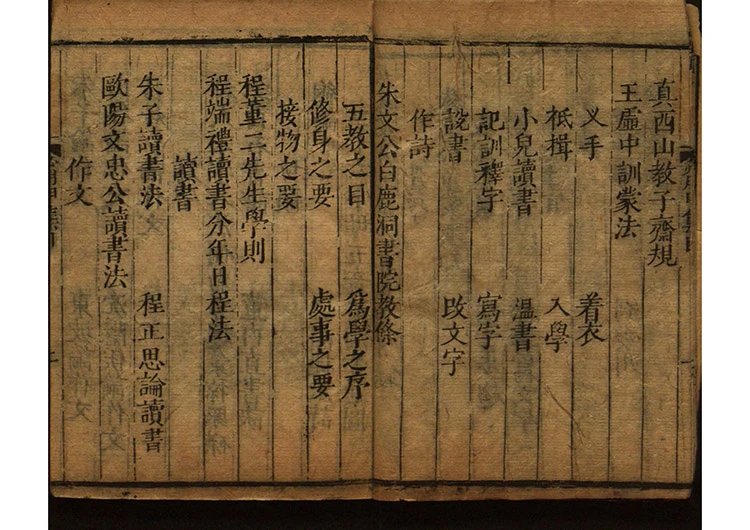 真西山教子齋規
王虛中訓蒙法
义手 着衣
祗揖 入學
小兒讀書 溫書
記訓釋字 寫字
說書 改文字
作詩
朱文公白鹿洞書院教條
五教之目 爲學之序
修身之要 處事之要
接物之要
程董二先生學則
程端禮讀書分年日程法
讀書
朱子讀書法 程正思論讀書
歐陽文忠公讀書法
作文